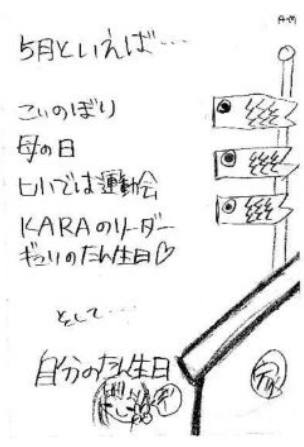 5月といえば…
こいのぼり
母の日
ヒトでは運動会
KARAのリーダー
ギュリのたん生日♡
そして…
自分のたん生日